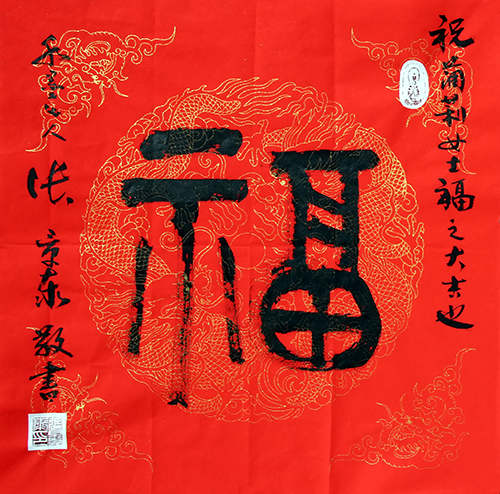 祝蒲莉女士福之大吉也
福
张京泰敬書